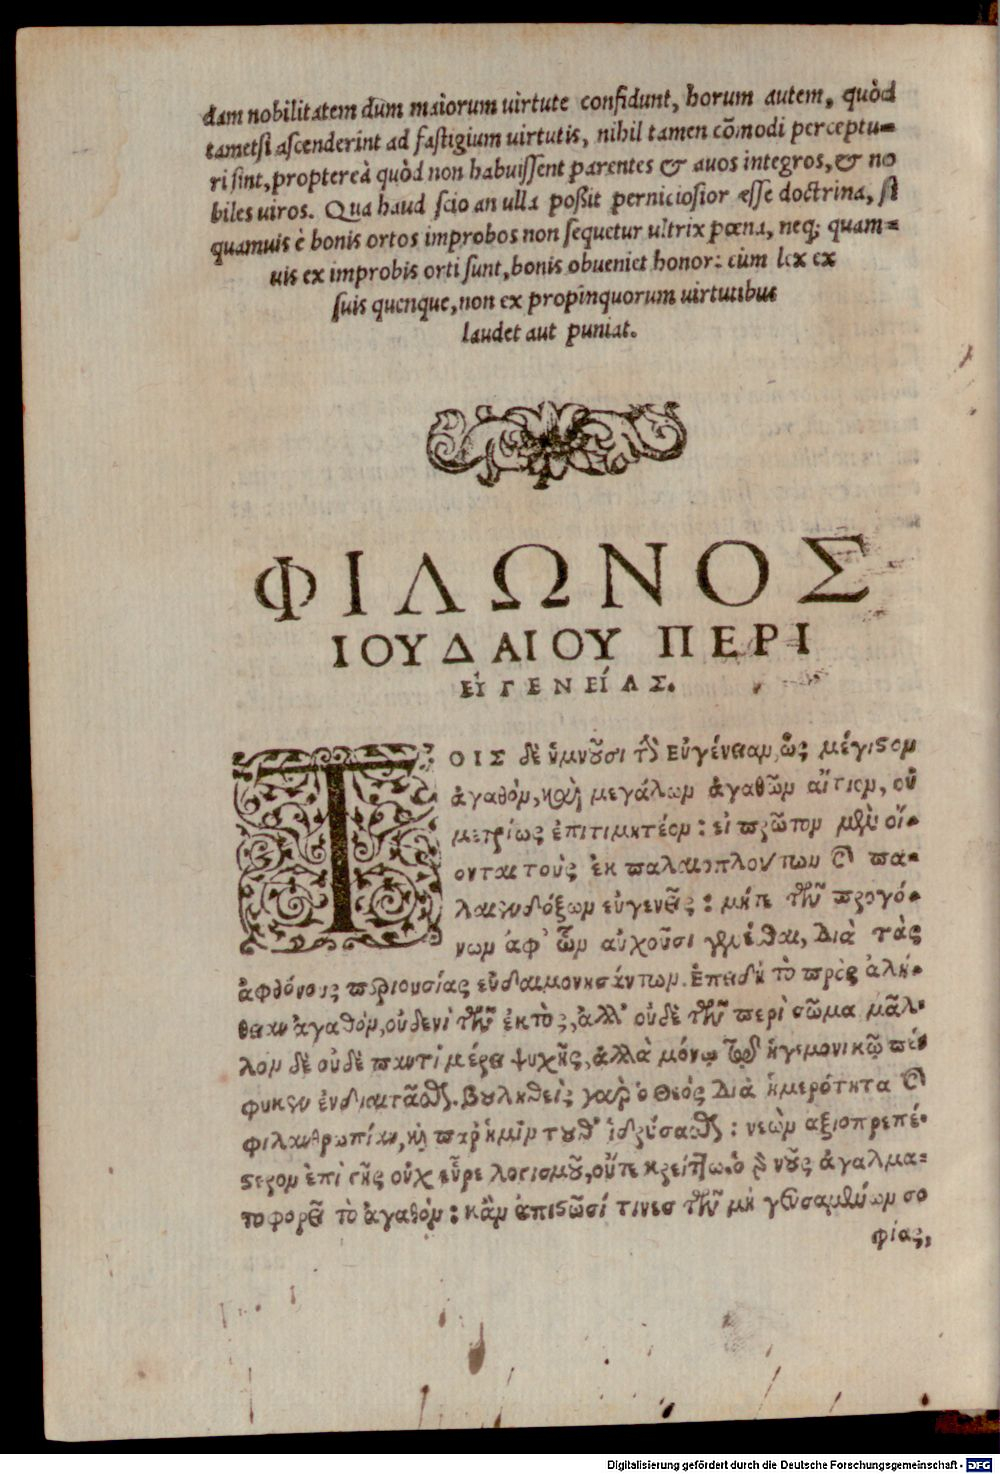 dam nobilitatem dum maiorum uirtute confidunt, horum autem, quòd
tametsi ascenderint ad fastigium uirtutis, nihil tamen cōmodi perceptu-
ri sint, proptereà quòd non habuissent parentes & auos integros, & no
biles uiros. Qua haud scio an ulla possit perniciosior esse doctrina, si
quamuis è bonis ortos improbos non sequetur ultrix pœna, neq; quam-
uis ex improbis orti sunt, bonis obueniet honor: cùm lex ex
suis quenque, non ex propinquorum uirtutibus
laudet aut puniat.
ΦΙΛΩΝΟΣ
ΙΟΥΔΑΙΟΥ ΠΕΡΙ
ΕΥΓΕΝΕΊΑΣ.
ΤΟΙΣ δὲ ὑμνοῦσι τὴν Εὐγένειαν, ὡς μέγιστον
ἀγαθὸν, καὶ μεγάλων ἀγαθῶν αἴτιον, οὐ
μετρίως ἐπιτιμητέον: εἰ πρῶτον μὲν οἴ-
ονται τοὺς ἐκ παλαιοπλούτων καὶ πα-
λαιενδόξων εὐγενεῖς: μήτε τῶν προγό-
νων ἀφ' ὧν αὐχοῦσι γενέσθαι, διὰ τὰς
ἀφθόνους περιουσίας εὐδαιμονησάντων. ἐπειδὴ τὸ πρὸς ἀλή-
θειαν ἀγαθὸν, οὐδενὶ τῶν ἐκτὸς, ἀλλ' οὐδὲ τῶν περὶ σῶμα μᾶλ-
λον δὲ οὐδὲ παντὶ μέρει ψυχῆς, ἀλλὰ μόνῳ τῷ ἡγεμονικῷ πέ
φυκεν ἐνδιαιτᾶσθαι. βουληθεὶς γὰρ ὁ θεὸς διὰ ἡμερότητα καὶ
φιλανθρωπίαν, καὶ παρ' ἡμῖν τοῦθ' ἱδρύσασθαι: νεὼν ἀξιοπρεπέ-
στερον ἐπὶ γῆς οὐχ εὗρε λογισμοῦ, οὔτε κρείττω. ὁ γὰρ νοῦς ἀγαλμα-
τοφορεῖ τὸ ἀγαθὸν: κἂν ἀπιστῶσί τινες τῶν μὴ γευσαμένων σο
φίας,
Digitalisierung gefördert durch die Deutsche Forschungsgemeinschaft - DFG